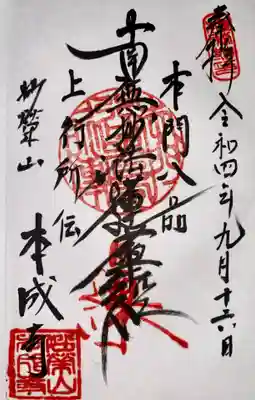 奉拝
令和四年九月十六日
本門八品
南無妙法蓮華経
上行所伝
妙栄山
本成寺